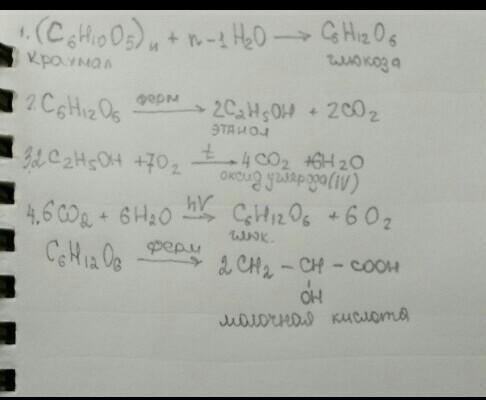 1. (C6H10O5)n + n-1 H2O → C6H12O6
крахмал глюкоза
2. C6H12O6 ферм → 2C2H5OH + 2CO2
этанол
3. 2C2H5OH + 7O2 t → 4CO2 + 6H2O
оксид углерода (IV)
4. 6CO2 + 6H2O hV → C6H12O6 + 6O2
глюк.
C6H12O6 ферм → 2CH2 - CH - COOH
OH
молочная кислота